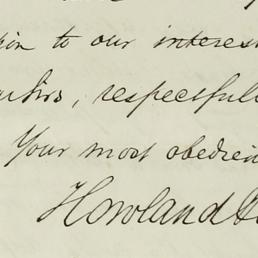 to our interes
respectfull
Your most obedien
Howland